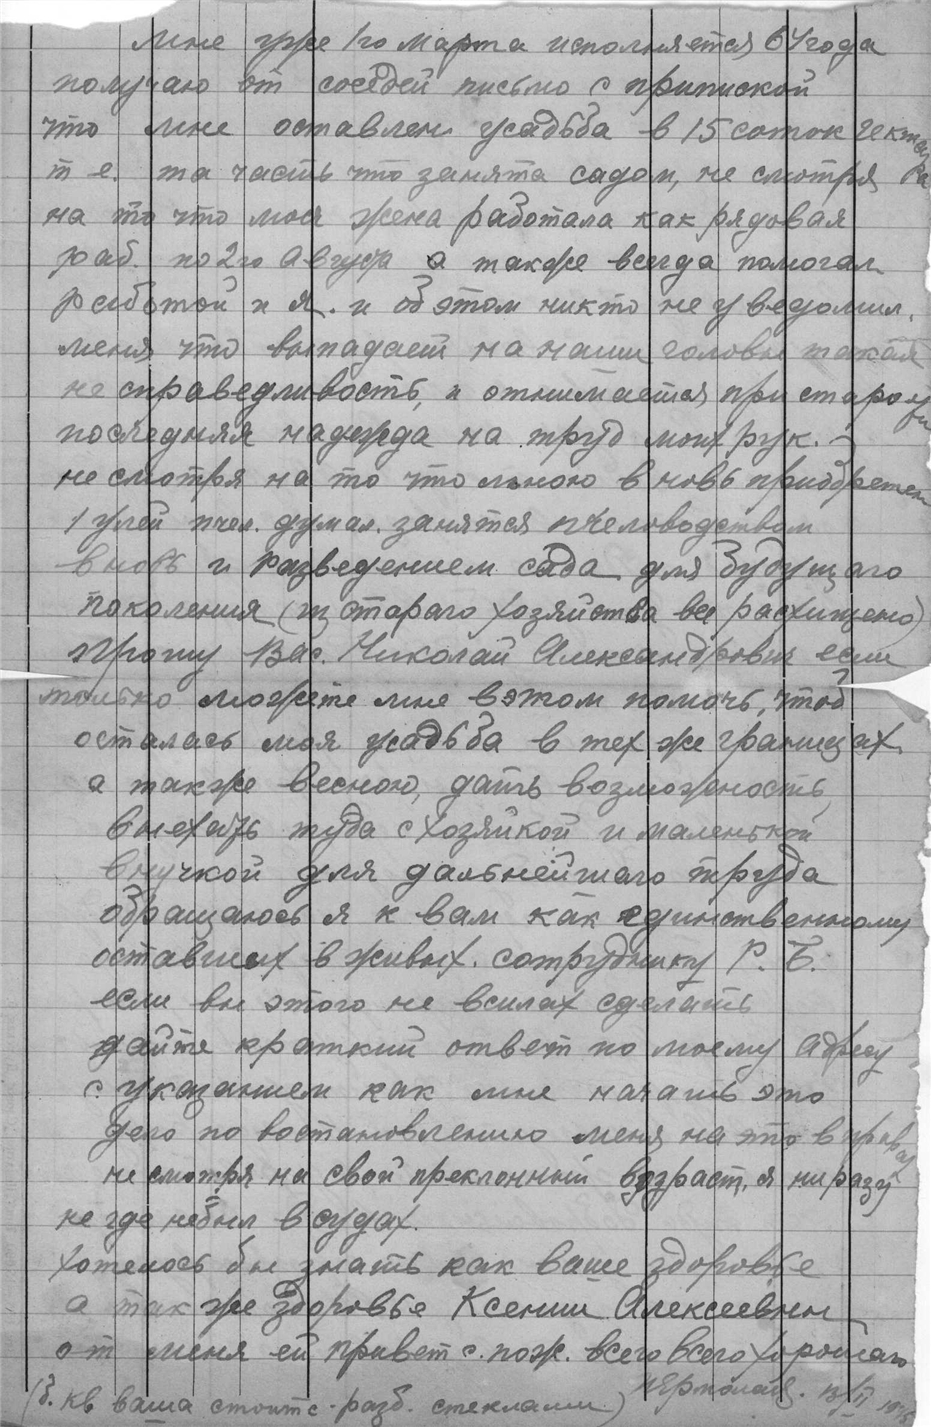 мне уже 1го марта исполняется 64 года
получаю от соседей письмо с припиской
что мне оставлен усадьба в 15 соток гектара
т е. та часть что занята садом, не смотря
на то что моя жена работала как рядовая
раб. по 2го Август а также всегда помогал
работой и я. и об этом никто не уведомил.
меня что выпадает на наши головы такая
не справедливость, и отнимается при старости
последняя надежда на труд моих рук.
не смотря на то что мною в новь приобретен
1 улей пчел. думал. занятся пчеловодством
вновь и разведением сада для будущаго
поколения (из стараго хозяйства все расхищено)
прошу Вас. Николай Александрович если
только можете мне в этом помочь, чтоб
осталась моя усадьба в тех же границах
а также весною, дать возможность
выехать туда с хозяйкой и маленькой
внучкой для дальнейшаго труда
обращаюсь я к вам как единственному
оставшех в живых. сотруднику Р. Б.
если вы этого не всилах сделать
дайте краткий ответ по моему адресу
с указанием как мне начать это
дело по востановлению меня на это в права
не смотря на свой преклонный возраст, я ни разу
не где небыл в судах.
хотелось бы знать как ваше здоровье
а так же здоровье Ксении Алексеевны
от меня ей привет с. пож. всего всего хорошаго
(б. кв ваша стоит с. разб. стеклами)